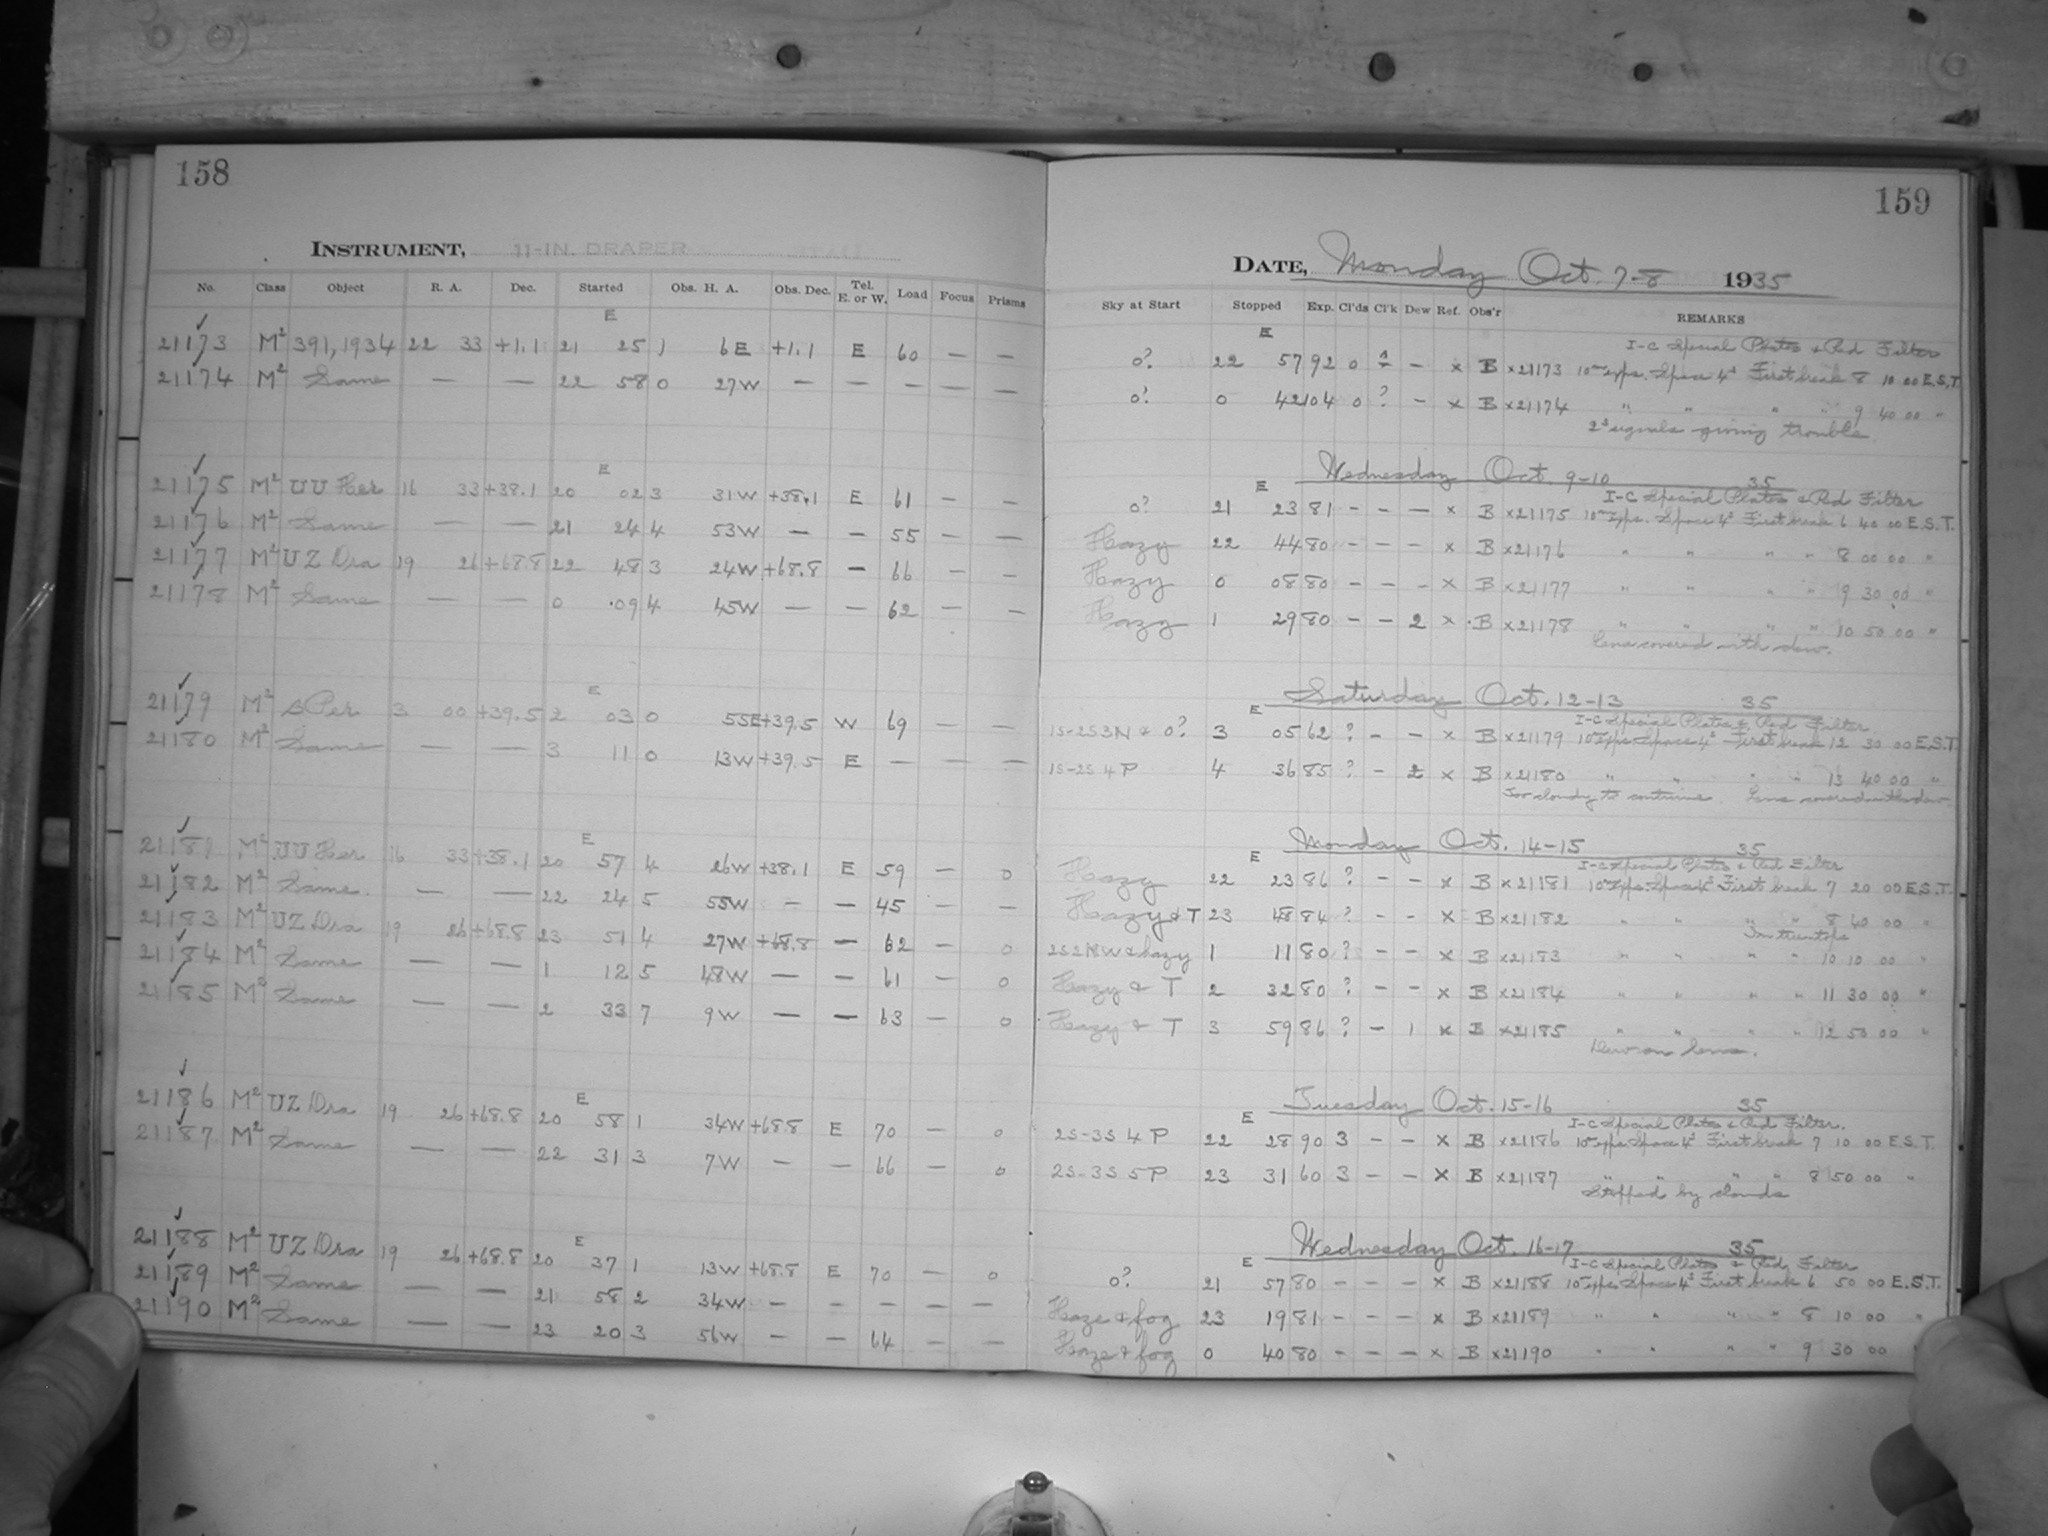 158
INSTRUMENT, 11-IN. DRAPER
No. Class Object R. A. Dec. Started Obs. H. A. Obs. Dec. Tel. E. or W. Load Focus Prisms
E
21173 M² 391,1934 22 33 +1.1 21 25 1 6E +1.1 E 60 — —
21174 M² Same — — 22 58 0 27W — — — — —
E
21175 M² UU Her 16 33 +38.1 20 02 3 31W +38.1 E 61 — —
21176 M² Same — — 21 24 4 53W — — 55 — —
21177 M² UZ Dra 19 26 +68.8 22 48 3 24W +68.8 — 66 — —
21178 M² Same — — 0 09 4 45W — — 62 — —
E
21179 M² β Per 3 00 +39.5 2 03 0 55E +39.5 W 69 — —
21180 M² Same — — 3 11 0 13W +39.5 E — — —
E
21181 M² UU Her 16 33 +38.1 20 57 4 26W +38.1 E 59 — 0
21182 M² Same. — — 22 24 5 55W — — 45 — —
21183 M² UZ Dra 19 26 +68.8 23 51 4 27W +68.8 — 62 — 0
21184 M² Same — — 1 12 5 48W — — 61 — 0
21185 M² Same — — 2 33 7 9W — — 63 — 0
E
21186 M² UZ Dra 19 26 +68.8 20 58 1 34W +68.8 E 70 — 0
21187 M² Same — — 22 31 3 7W — — 66 — 0
E
21188 M² UZ Dra 19 26 +68.8 20 37 1 13W +68.8 E 70 — 0
21189 M² Same — — 21 58 2 34W — — — — —
21190 M² Same — — 23 20 3 56W — — 64 — —
159
DATE, Monday Oct. 7-8 1935
Sky at Start Stopped Exp. Cl'ds Cl'k Dew Ref. Obs'r REMARKS
E I-C Special Plates & Red Filter
0? 22 57 92 0 — x B x21173 10ᵐ Exps. Space 4ˢ First break 8 10 00 E.S.T.
0? 0 42 104 0 ? — x B x21174 " " " " 9 40 00 "
2ˢ signals giving trouble.
Wednesday Oct. 9-10 35
E I-C Special Plates & Red Filter
0? 21 23 81 — — — x B x21175 10ᵐ Exps. Space 4ˢ First break 6 40 00 E.S.T.
Hazy 22 44 80 — — — x B x21176 " " " " 8 00 00 "
Hazy 0 08 80 — — — x B x21177 " " " " 9 30 00 "
Hazy 1 29 80 — — 2 x B x21178 " " " " 10 50 00 "
Lens covered with dew.
Saturday Oct. 12-13 35
E I-C Special Plates & Red Filter
1S-2S3N & 0? 3 05 62 ? — — x B x21179 10ᵐ Exps. Space 4ˢ First break 12 30 00 E.S.T.
1S-2S 4P 4 36 85 ? — 2 x B x21180 " " " " 13 40 00 "
Too cloudy to continue. Lens covered with dew.
Monday Oct. 14-15 35
E I-C Special Plates & Red Filter
Hazy 22 23 86 ? — — x B x21181 10ᵐ Exps. Space 4ˢ First break 7 20 00 E.S.T.
Hazy & T 23 48 84 ? — — x B x21182 " " " " 8 40 00 "
In treetops
2S2NW & hazy 1 11 80 ? — — x B x21183 " " " " 10 10 00 "
Hazy & T 2 32 80 ? — — x B x21184 " " " " 11 30 00 "
Hazy & T 3 59 86 ? — 1 x B x21185 " " " " 12 50 00 "
Dew on lens.
Tuesday Oct. 15-16 35
E I-C Special Plates & Red Filter.
2S-3S 4P 22 28 90 3 — — x B x21186 10ᵐ Exps. Space 4ˢ First break 7 10 00 E.S.T.
2S-3S 5P 23 31 60 3 — — x B x21187 " " " " 8 50 00 "
Stopped by clouds
Wednesday Oct. 16-17 35
E I-C Special Plates & Red Filter
0? 21 57 80 — — — x B x21188 10ᵐ Exps. Space 4ˢ First break 6 50 00 E.S.T.
Haze & fog 23 19 81 — — — x B x21189 " " " " 8 10 00 "
Haze & fog 0 40 80 — — — x B x21190 " " " " 9 30 00 "